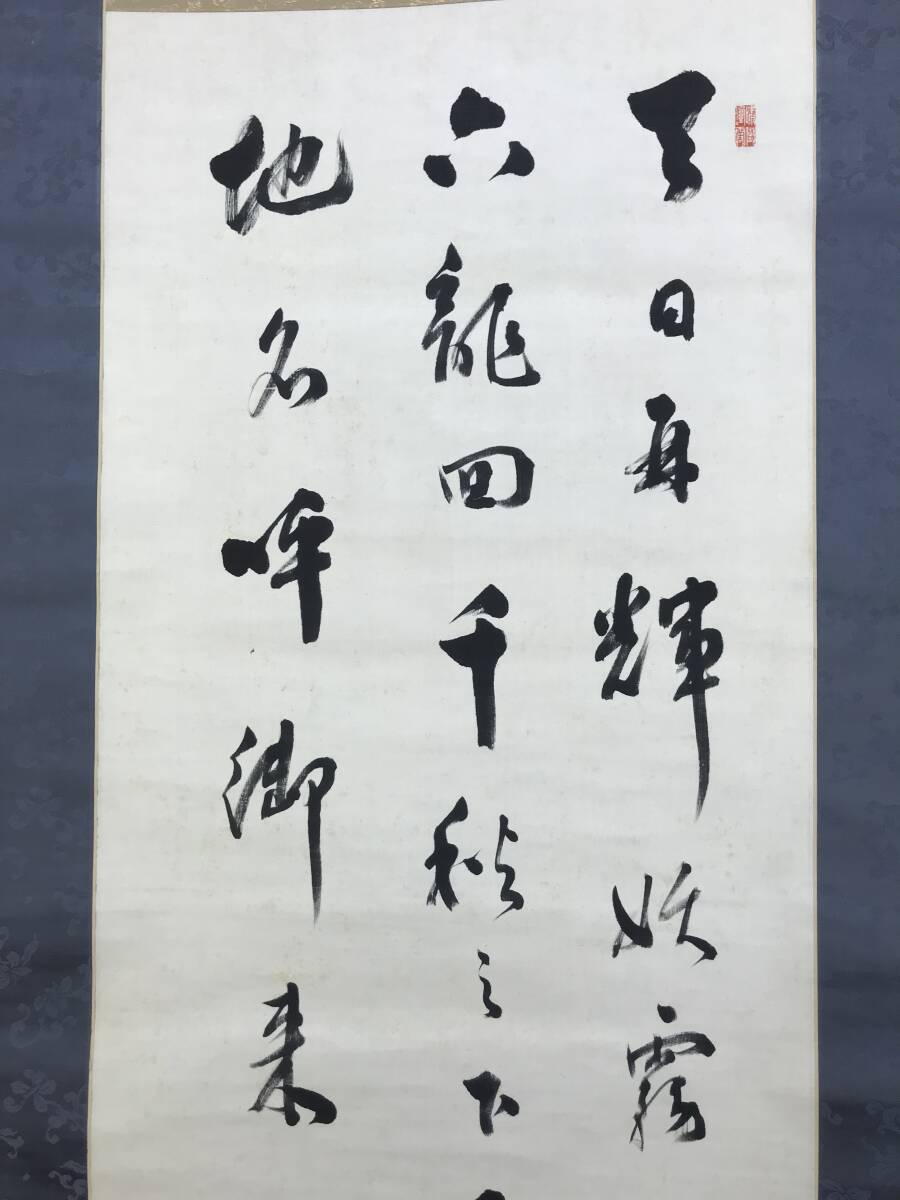 天日再輝妖霧
六龍回千秋之下
地名呼御来